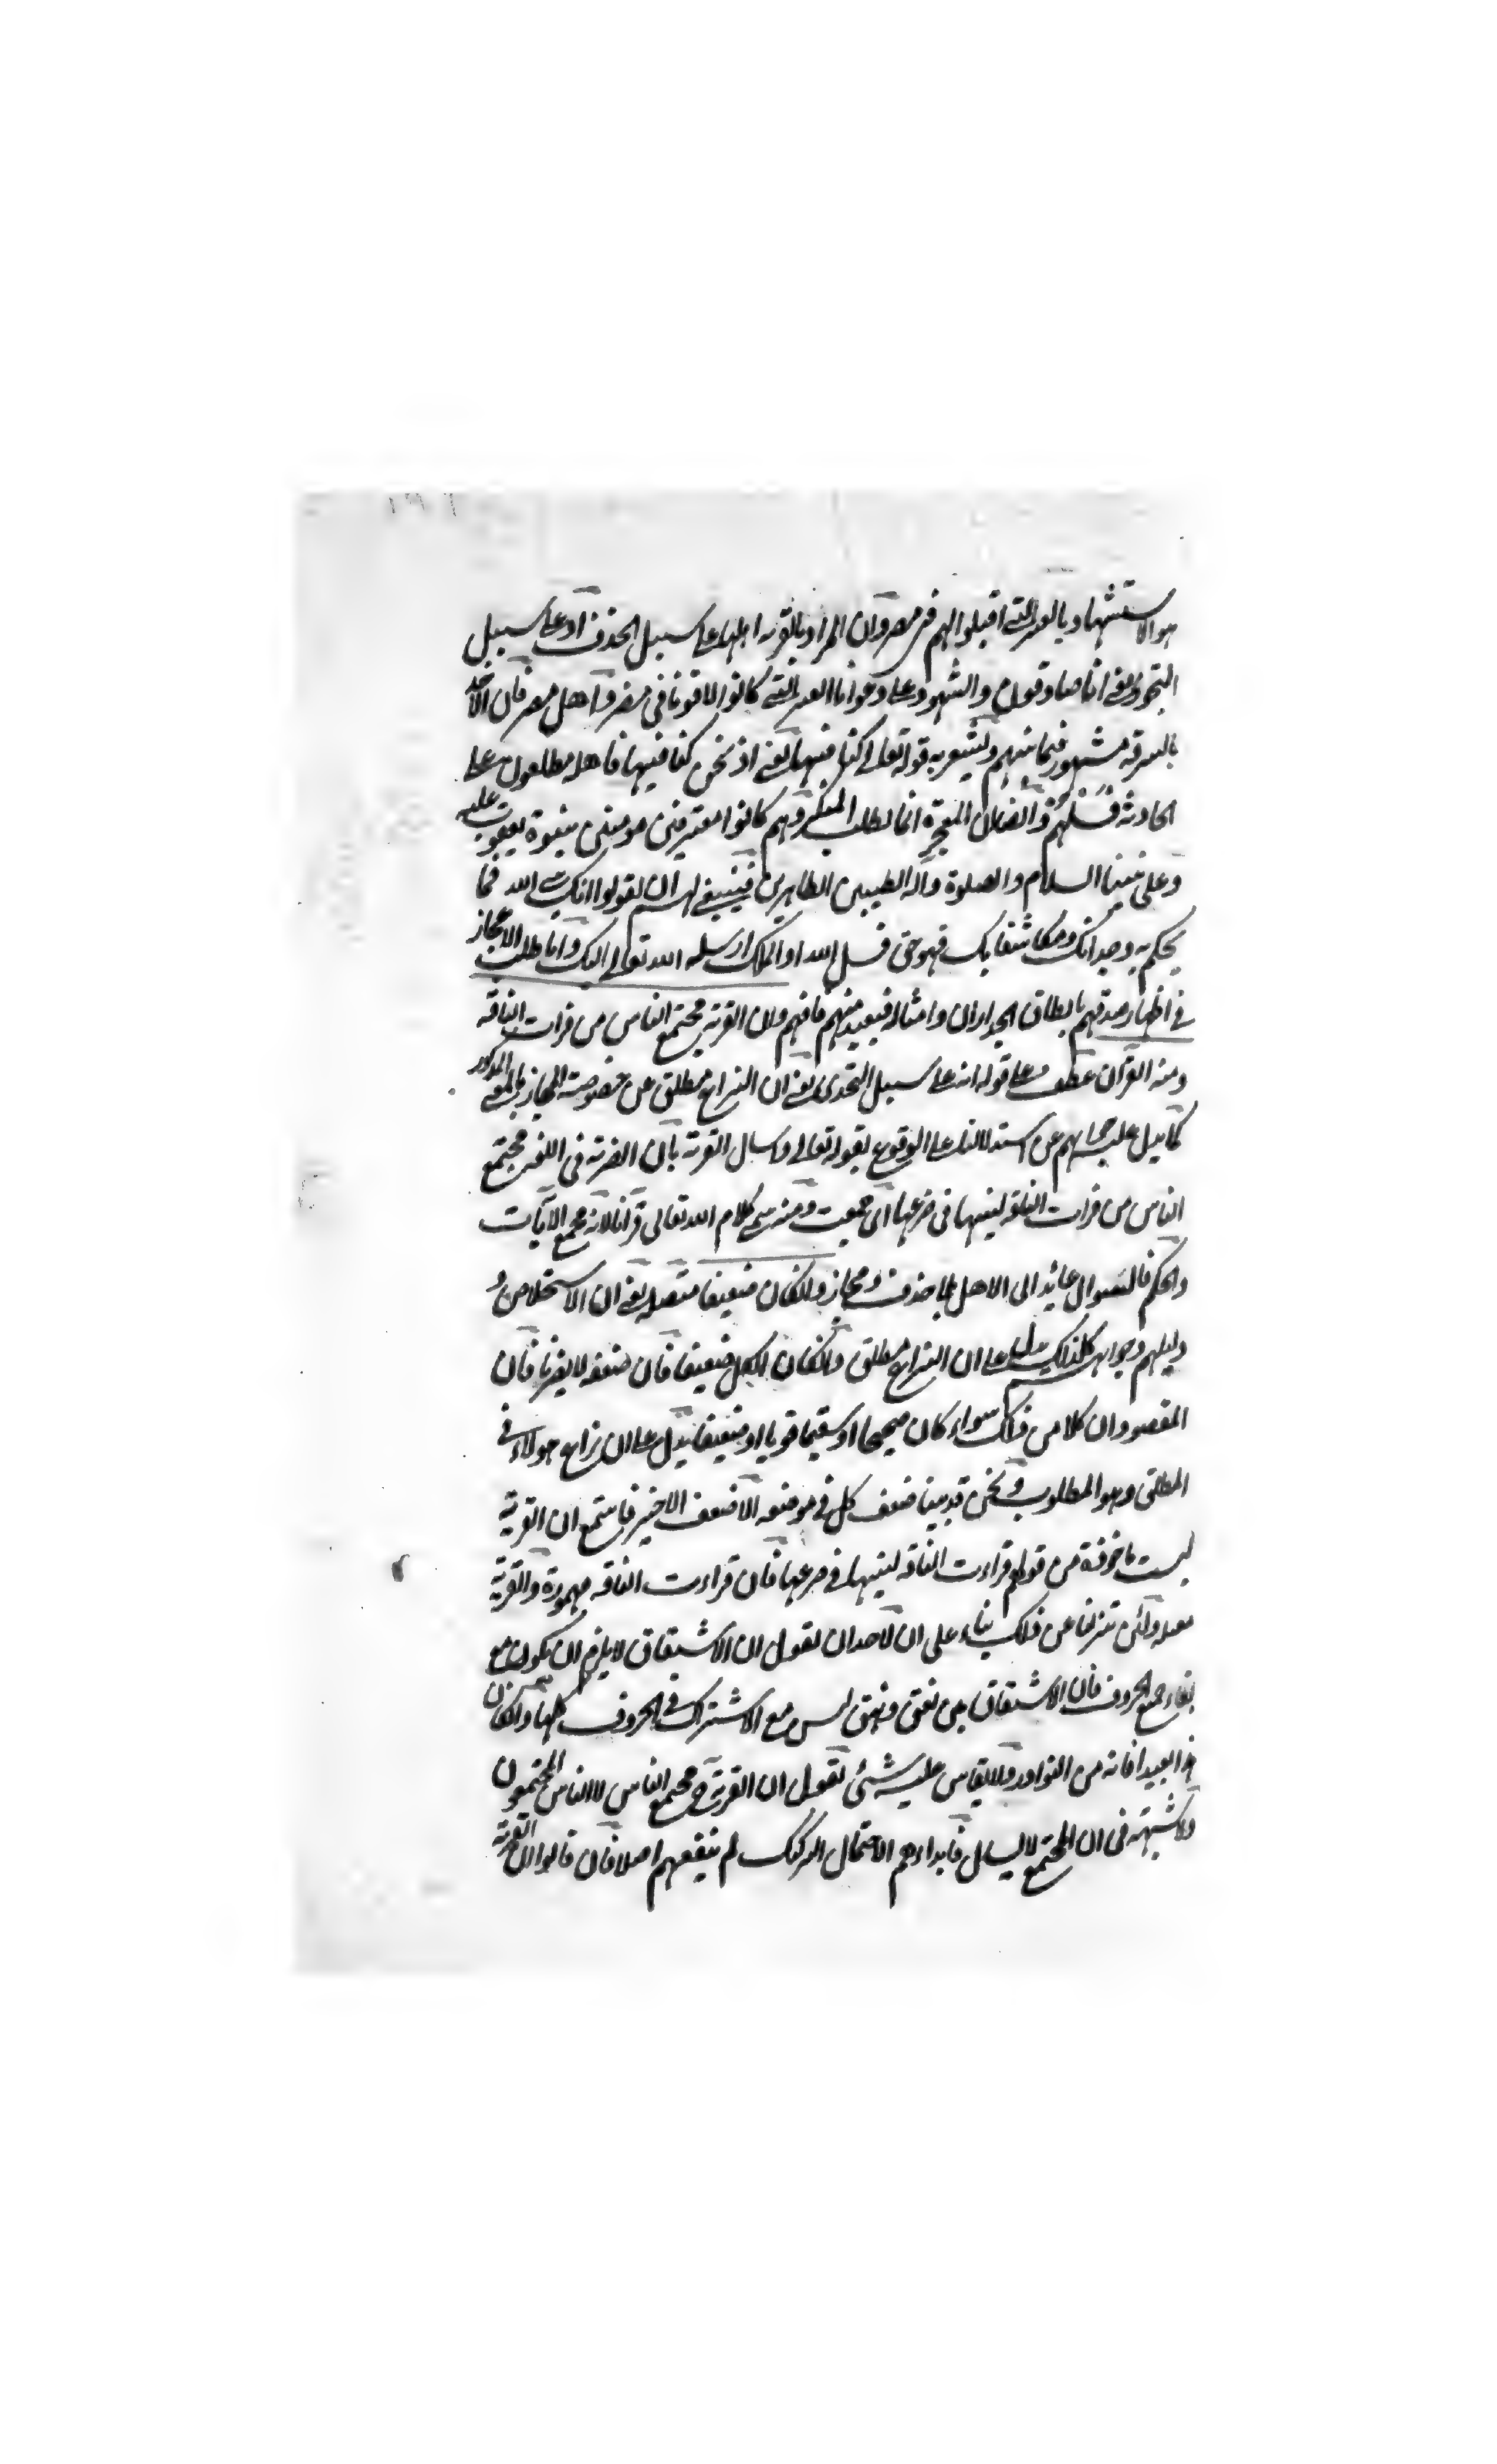 هو الاستشهاد بالعير التي اقبلوا اليهم من مصر وان المراد بالقرية اهلها على سبيل الحذف او على سبيل
التجوز يعني انا صادقون والشهود على دعوانا العير التي كانوا لاقونا في مصر واهل مصر فان الاخذ
بالسرقة مشهور فيما بينهم ويشعر به قوله تعالى كنا فيها يعني اذ نحن كنا فيها فاهله مطلعون على
الحادثة فسلهم وايضا ان المعجزة انما يطلب المنكر وهم كانوا معترفين مومنين بنبوة يعقوب عليه
وعلى نبينا السلام والصلوة وآله الطيبين الطاهرين فينبغي لهم ان يقولوا انك نبي الله فما
يحكم به وجدانك ومكاشفاتك فهو حق فسل الله او الملك ارسله الله تعالى اليك واما طلب الاعجاز
في اظهار صدقهم بانطاق الجدران وامثاله فبعيد منهم فافهم ولان القرية مجتمع الناس من قرات الناقة
ومنه القرآن عطف على قوله انه على سبيل التحدي يعني ان النزاع مطلق عن خصوصية المجاز بالمعنى المذكور
كما يدل عليه جوابهم عن استدلالنا على الوقوع بقوله تعالى واسال القرية بان القرية في اللغة مجتمع
الناس من قرات الناقة لبنها في ضرعها اى جمعت ومنه سمي كلام الله تعالى قرانا لانه مجمع الآيات
والحكم فالسوال عائد الى الاهل بلا حذف ومجاز وان كان ضعيفا متصل يعني ان الاستخلاص و
دليلهم وجوابهم كلذلك يدل على ان النزاع مطلق وان كان الكل ضعيفا فان ضعفه لا يضرنا فان
المقصود ان كلا من ذلك سواء كان صحيحا او سقيما قويا او ضعيفا يدل على ان نزاع هولاء في
المطلق وهو المطلوب ونحن قد بينا ضعف كل في موضعه الا ضعف الاخير فاستمع ان القرية
ليست ماخوذة من قولهم قراءت الناقة لبنها في ضرعها فان قراءت الناقة مهموزة والقرية
معتلة ولئن تنزلنا عن ذلك بناء على ان لاحد ان يقول ان الاشتقاق لا يلزم ان يكون مع
بقاء جميع الحروف فان الاشتقاق بين نعق ونهق ليس مع الاشتراك في الحروف كلها وان كان
هذا بعيدا فانه من النوادر ولا يقاس عليه شئ نقول ان القرية ح مجتمع الناس لا الناس المجتمعون
ولا شبهة في ان المجتمع لا يسال فابداءهم الاحتمال الركيك لم ينفعهم اصلا فان قالوا ان القرية